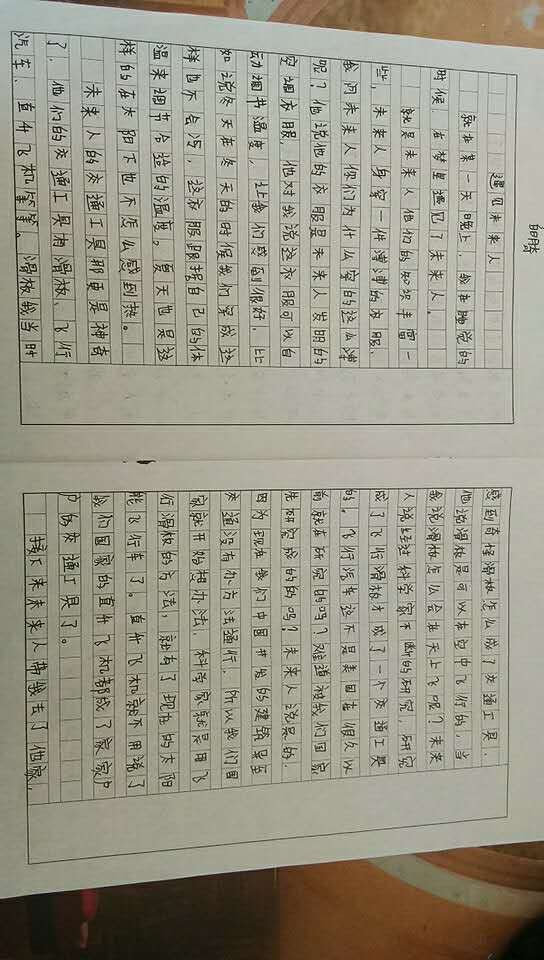 遇见未来人
就在某一天晚上，我在睡觉的
时候，在梦里遇见了未来人。
就是未来人他们的知识丰富一
些，未来人身穿一件薄薄的衣服、
我问未来人你们为什么穿的这么薄
呢？他说他的衣服是未来人发明的
空调衣服，他对我说这衣服可以自
动调节温度，让我们感到很好，比
如说冬天在冬天的时候我们穿成这
样也不会冷，这衣服跟据自己的体
温来调节合适的温度。夏天也是这
样的在太阳下也不怎么感到热。
未来人的交通工具那更是神奇
了，他们的交通工具有滑板、飞行
汽车、直升飞机等等。滑板我当时
感到奇怪滑板怎么成了交通工具，
他说滑板是可以在空中飞行的，
我说滑板怎么会在天上飞呢？未来
人说经过科学家不断的研究，研究
成了飞行滑板才成了一个交通工具
的。飞行汽车这不是美国在很久以
前就在研究的吗？难道被我们国家
先研究成的的吗？未来人说是的，
因为现在我们中国开发的建筑甚至
交通没有办方法通行，所以我们国
家就开始想办法，科学家就是用飞
行滑板的方法，就有了现在的太阳
能飞行车了。直升飞机就不用说了
我们国家的直升飞机都成了家家户
户的交通工具了。
接下来未来人带我去了他家，